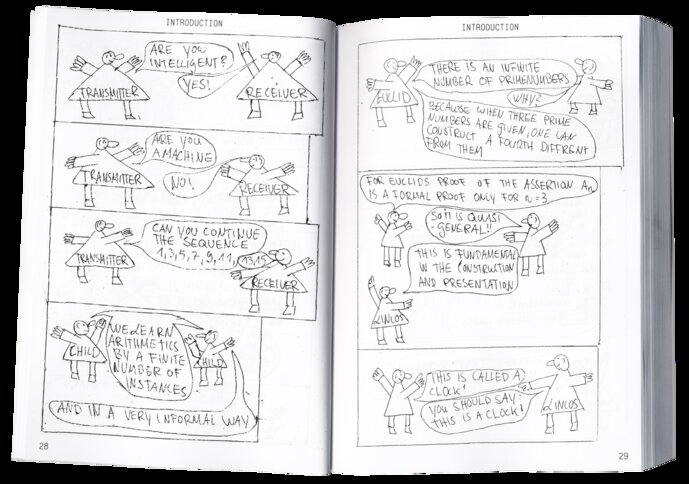 INTRODUCTION
ARE YOU
INTELLIGENT?
YES!
TRANSMITTER
RECEIVER
ARE YOU
A MACHINE
NO!
TRANSMITTER
RECEIVER
CAN YOU CONTINUE
THE SEQUENCE
1,3,5,7,9,11,
13,15
TRANSMITTER
RECEIVER
WE LEARN
ARITHMETICS
BY A FINITE
NUMBER OF
INSTANCES
CHILD
CHILD
AND IN A VERY INFORMAL WAY
28
INTRODUCTION
THERE IS AN INFINITE
NUMBER OF PRIMENUMBERS
EUCLID
WHY?
BECAUSE WHEN THREE PRIME
NUMBERS ARE GIVEN, ONE CAN
CONSTRUCT A FOURTH DIFFRENT
FROM THEM
FOR EUCLIDS PROOF OF THE ASSERTION An
IS A FORMAL PROOF ONLY FOR n=3
SO IT IS QUASI
-GENERAL!!
THIS IS FUNDAMENTAL
IN THE CONSTRUCTION
AND PRESENTATION
LINCOS
THIS IS CALLED A
CLOCK!
YOU SHOULD SAY
THIS IS A CLOCK!
LINCOS
29